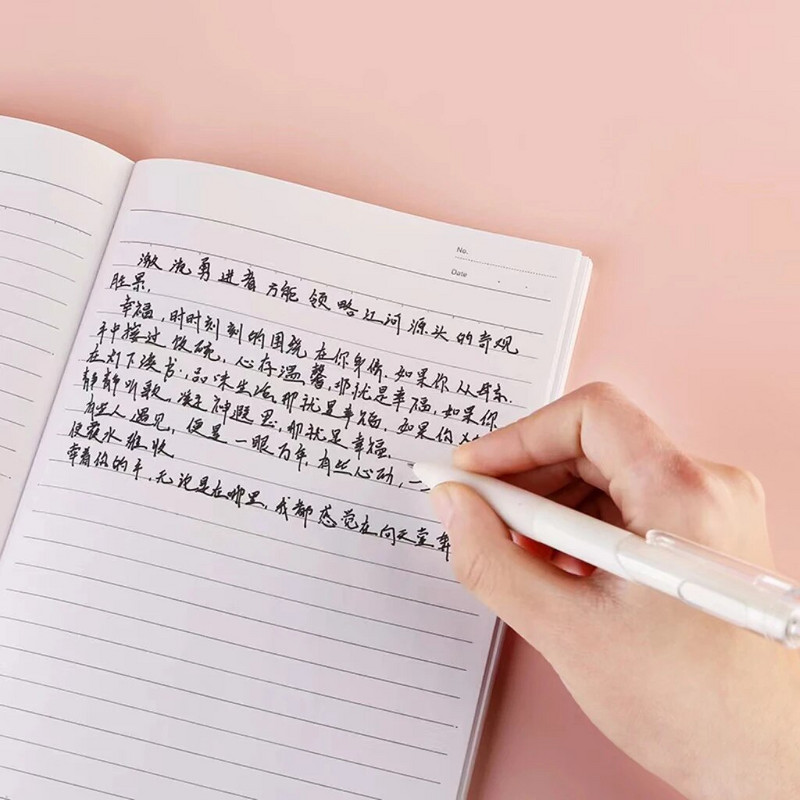 No.
Date
激流勇进者方能领略江河源头的奇观
胜景。
幸福，时时刻刻的围绕在你身傍。如果你从母亲
手中接过饭碗，心存温馨，那就是幸福，如果你
在灯下读书，品味生活，那就是幸福，如果你
静静听歌，凝神遐思，那就是幸福。
有些人遇见，便是一眼万年，有些心动，一
便覆水难收
牵着你的手，无论是在哪里，我都感觉在向天堂奔